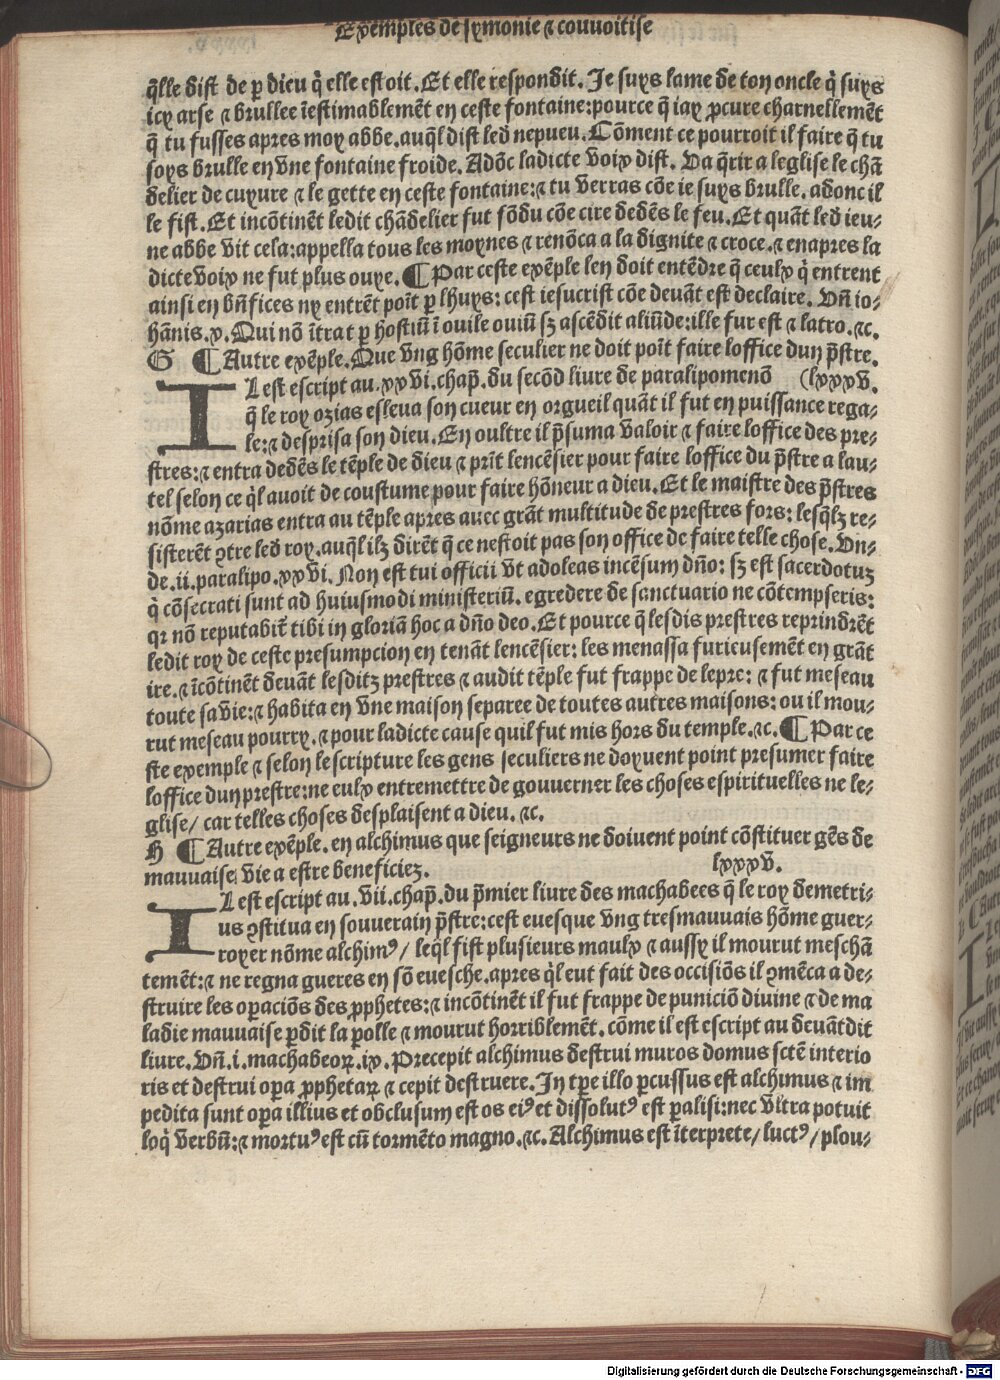 Exemples de symonie ⁊ couuoitise
q̃lle dist de p̱ dieu q̃ elle estoit. Et elle respondit. Je suys lame de ton oncle q̃ suys
icy arse ⁊ brullee ĩestimablemẽt en ceste fontaine:pource q̃ iay ꝓcure charnellemẽt
q̃ tu fusses apres moy abbe.auq̃l dist led̃ nepueu. Cõment ce pourroit il faire q̃ tu
soys brulle en vne fontaine froide. Adõc ladicte voix dist. Va q̃rir a leglise le chã
delier de cuyure ⁊ le gette en ceste fontaine:⁊ tu verras cõe ie suys brulle. adonc il
le fist. Et incõtinẽt ledit chãdelier fut fõdu cõe cire dedẽs le feu. Et quãt led̃ ieu-
ne abbe vit cela:appella tous les moynes ⁊ renõca a la dignite ⁊ croce.⁊ enapres la
dicte voix ne fut plus ouye. ¶ Par ceste exẽple len doit entẽdre q̃ ceulx q̃ entrent
ainsi en bñfices ny entrẽt poĩt ꝑ lhuys: cest iesucrist cõe deuãt est declaire. Vñ io-
hãnis.x. Qui nõ ĩtrat ꝑ hostiũ ĩ ouile ouiũ sꝫ ascẽdit aliũde:ille fur est ⁊ latro.⁊c.
G ¶ Autre exẽple. Que vng hõme seculier ne doit poĩt faire loffice dun p̃stre.
IL est escript au .xxvi.chap̃. du secõd liure de paralipomenõ (lxxxv.
q̃ le roy ozias esleua son cueur en orgueil quãt il fut en puissance rega-
le:⁊ desprisa son dieu. En oultre il p̃suma valoir ⁊ faire loffice des pre-
stres:⁊ entra dedẽs le tẽple de dieu ⁊ prĩt lencẽsier pour faire loffice du p̃stre a lau-
tel selon ce q̃l auoit de coustume pour faire hõneur a dieu. Et le maistre des p̃stres
nõme azarias entra au tẽple apres auec grãt multitude de prestres fors: lesq̃lz re-
sisterẽt ꝯtre led̃ roy.auq̃l ilz dirẽt q̃ ce nestoit pas son office de faire telle chose. Vn-
de .ii. paralipo.xxvi. Non est tui officii vt adoleas incẽsum dño: sꝫ est sacerdotuꝫ
q̃ cõsecrati sunt ad huiusmodi ministeriũ. egredere de sanctuario ne cõtempseris:
qꝛ nõ reputabit̃ tibi in gloriã hoc a dño deo. Et pource q̃ lesdis prestres reprindrẽt
ledit roy de ceste presumpcion en tenãt lencẽsier: les menassa furieusemẽt en grãt
ire.⁊ ĩcõtinẽt deuãt lesditz prestres ⁊ audit tẽple fut frappe de lepre: ⁊ fut meseau
toute sa vie:⁊ habita en vne maison separee de toutes autres maisons: ou il mou-
rut meseau pourry.⁊ pour ladicte cause quil fut mis hors du temple.⁊c. ¶ Par ce
ste exemple ⁊ selon lescripture les gens seculiers ne doyuent point presumer faire
loffice dun prestre:ne eulx entremettre de gouuerner les choses espirituelles ne le-
glise/ car telles choses desplaisent a dieu. ⁊c.
H ¶ Autre exẽple. en alchimus que seigneurs ne doiuent point cõstituer gẽs de
mauuaise vie a estre beneficiez. lxxxv.
IL est escript au .vii.chap̃. du p̃mier liure des machabees q̃ le roy demetri-
us ꝯstitua en souuerain p̃stre:cest euesque vng tresmauuais hõme guer-
royer nõme alchimꝰ/ leq̃l fist plusieurs maulx ⁊ aussy il mourut meschã
temẽt:⁊ ne regna gueres en sõ euesche.apres q̃l eut fait des occisiõs il ꝯmẽca a de-
struire les oꝑaciõs des ꝓphetes:⁊ incõtinẽt il fut frappe de puniciõ diuine ⁊ de ma
ladie mauuaise ꝑdit la ꝑolle ⁊ mourut horriblemẽt. cõme il est escript au deuãtdit
liure. Vñ. i. machabeoꝝ. ix. Precepit alchimus destrui muros domus sctẽ interio
ris et destrui oꝑa ꝓphetaꝝ ⁊ cepit destruere. In tꝑe illo ꝑcussus est alchimus ⁊ im
pedita sunt oꝑa illius et obclusum est os eiꝰ et dissolutꝰ est ꝑalisi:nec vltra potuit
loq̃ verbũ:⁊ mortuꝰ est cũ tormẽto magno.⁊c. Alchimus est ĩterprete/ luctꝰ/ plou-
Digitalisierung gefördert durch die Deutsche Forschungsgemeinschaft - DFG